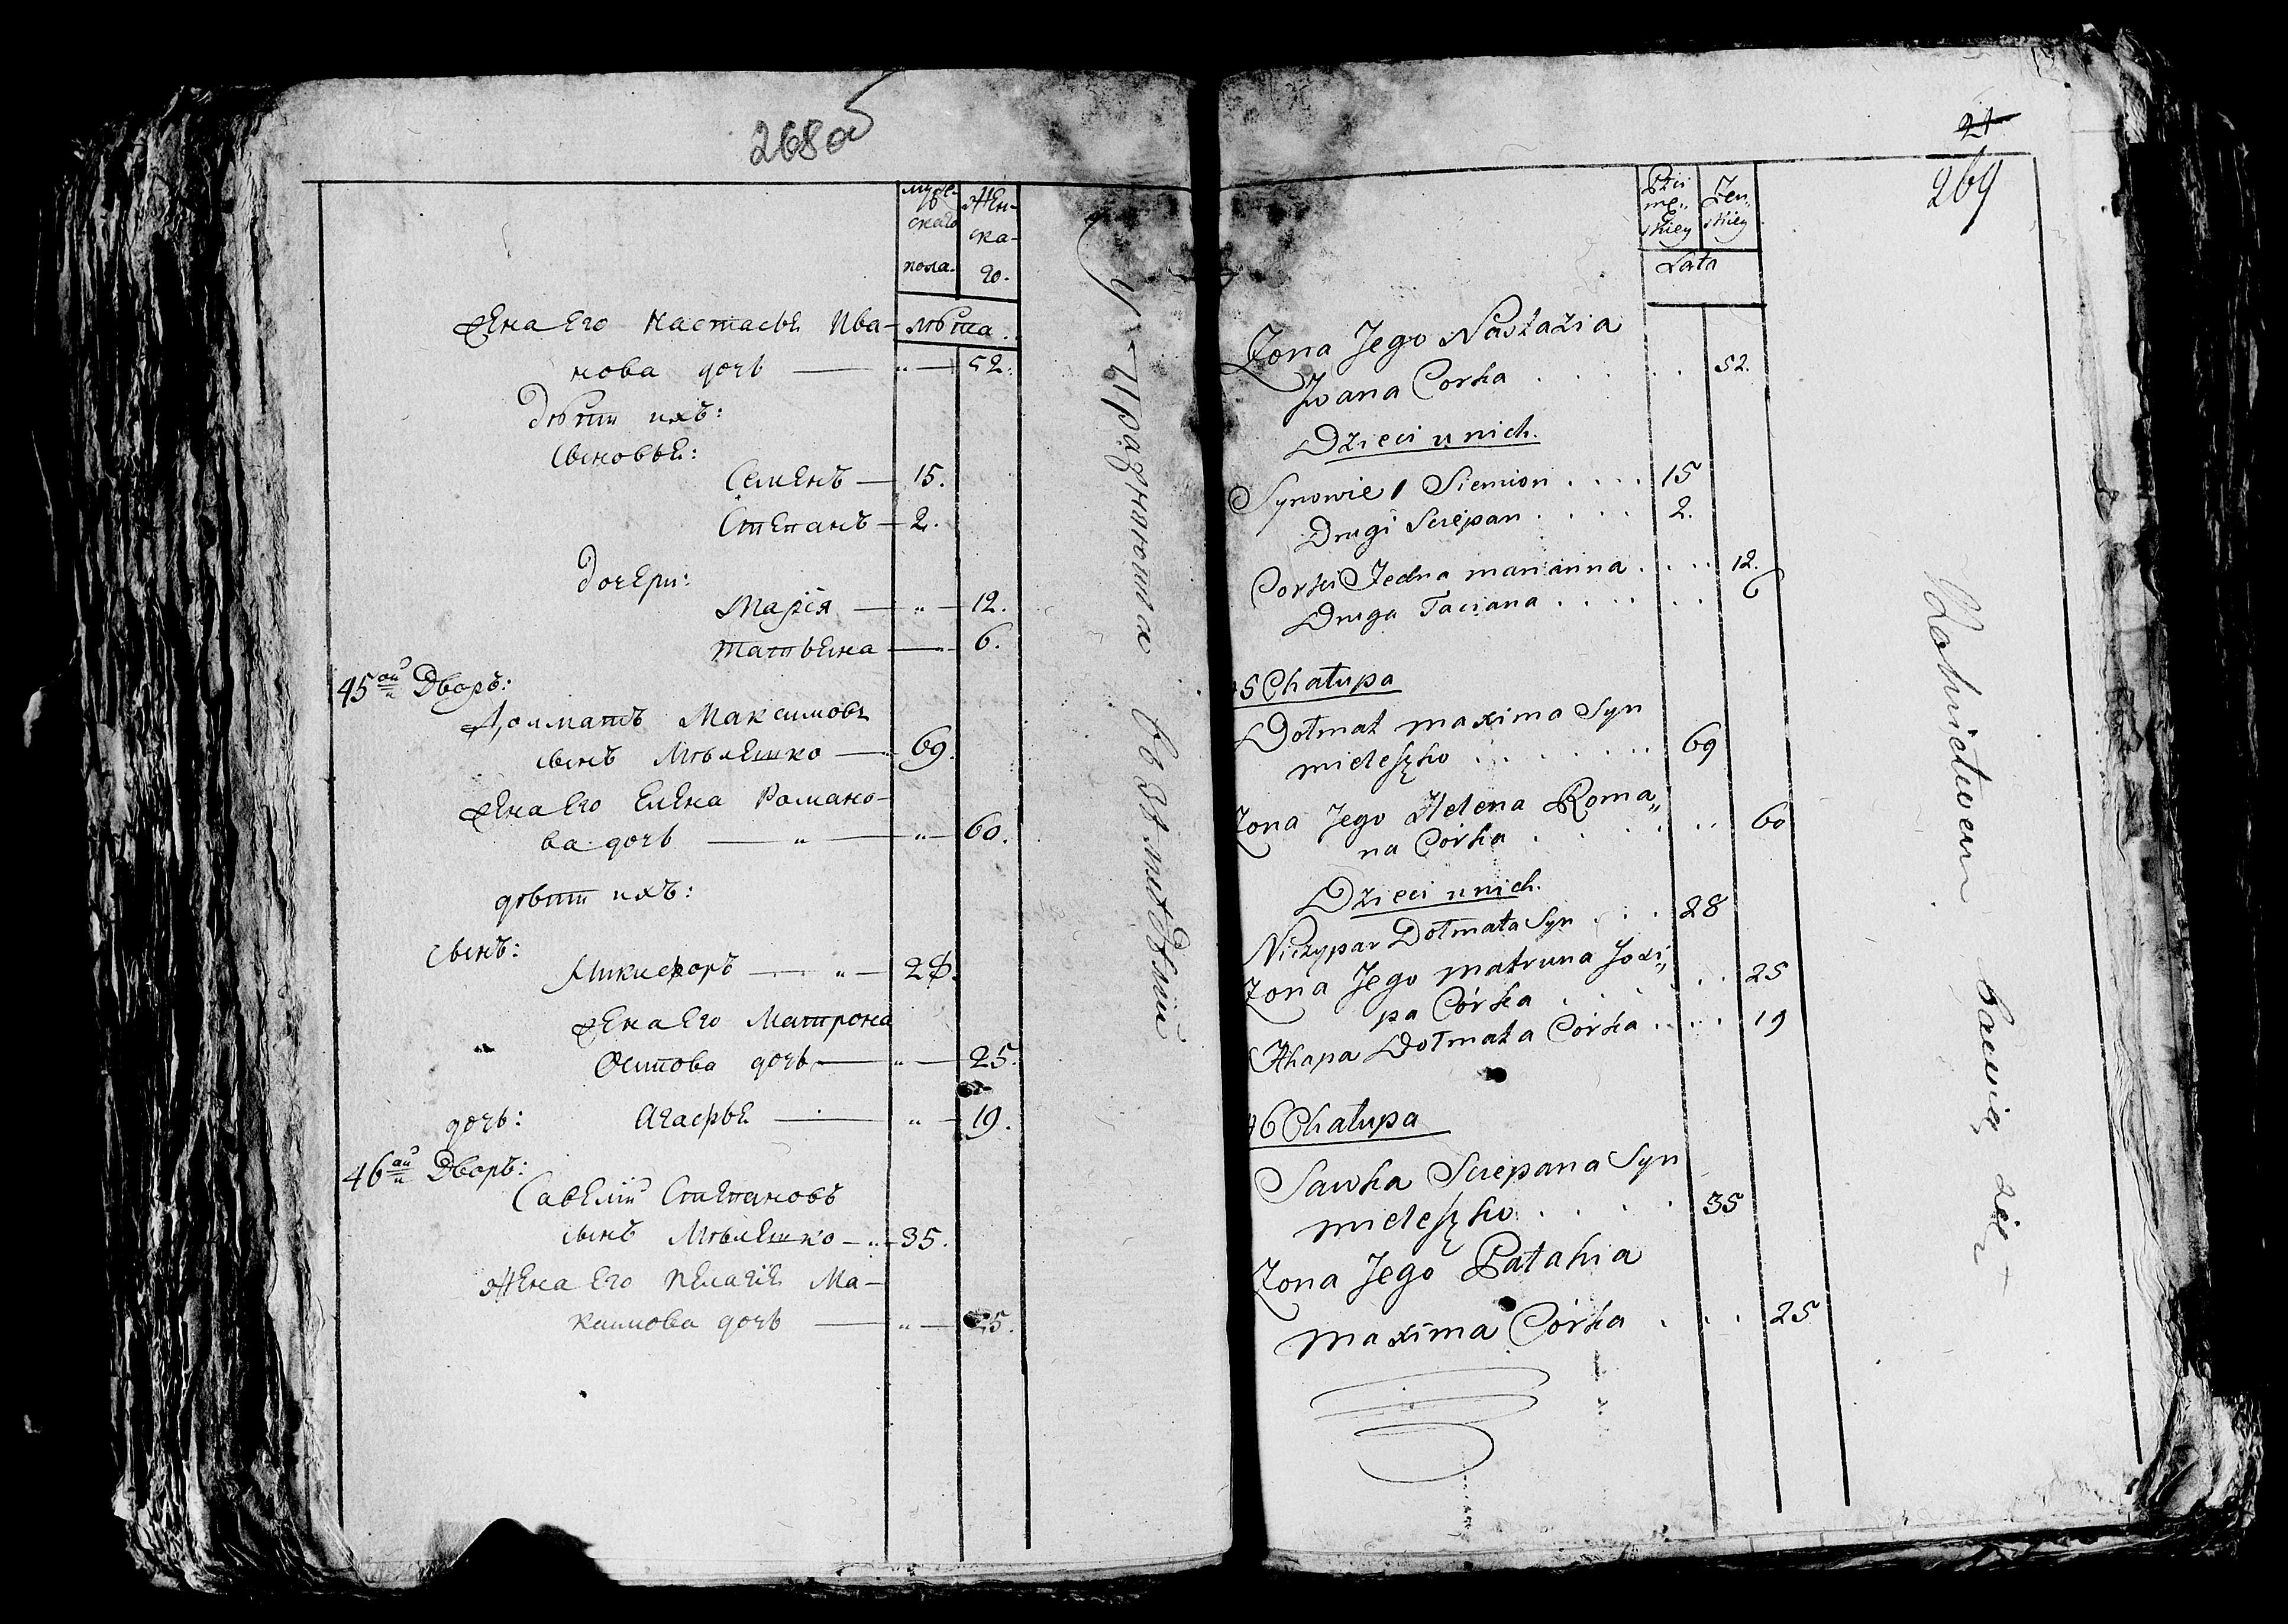 268 об
мужескаго пола.
женскаго.
лѣта.
жена Его настасья Ива-
нова дочь — „ — 52.
Дѣти ихъ:
Сыновья:
Семенъ — 15.
Степанъ — 2.
дочери:
Марія — „ — 12.
татьяна — „ — 6.
45ой Дворъ:
Долматъ Максимовъ
сынъ Мѣлешко — 69.
жена Его Елена Романо-
ва дочь — „ — „ — 60.
дѣти ихъ:
сынъ:
Никифоръ — „ — 28.
жена Его Матрона
Осипова дочь — „ — 25.
дочь: Агафья — „ — 19.
46ой Дворъ:
Савелій Степановъ
сынъ Мѣлешко — „ — 35.
жена Его пелагія Ма-
ксимова дочь — „ — 25.
Упражняются въ Землѣдѣліи
21
269
Płci męskiey
żenskiey
Lata
Zona Jego Nastazia
Jwana Corka . . . . . . 52.
Dzieci u nich.
Synowie 1 Siemion . . . . 15
Drugi Sciepan . . . . 2.
Corki Jedna marianna . . . . 12.
Druga Taciana . . . . . . 6
45 Chałupa
Dołmat maxima Syn
mieleszko . . . . . . . 69
Zona Jego Helena Roma„
na Córka . . . . . . . 60
Dzieci u nich.
Niczypar Dołmata Syn . . . 28
Zona Jego matruna Joxi„
pa Córka . . . . . . 25
Ahapa Dołmata Córka . . . . 19
46 Chałupa
Sawka Sciepana Syn
mieleszko . . . . . 35
Zona Jego Pałahia
maxima Córka . . . 25
Rolnictwem bawią się